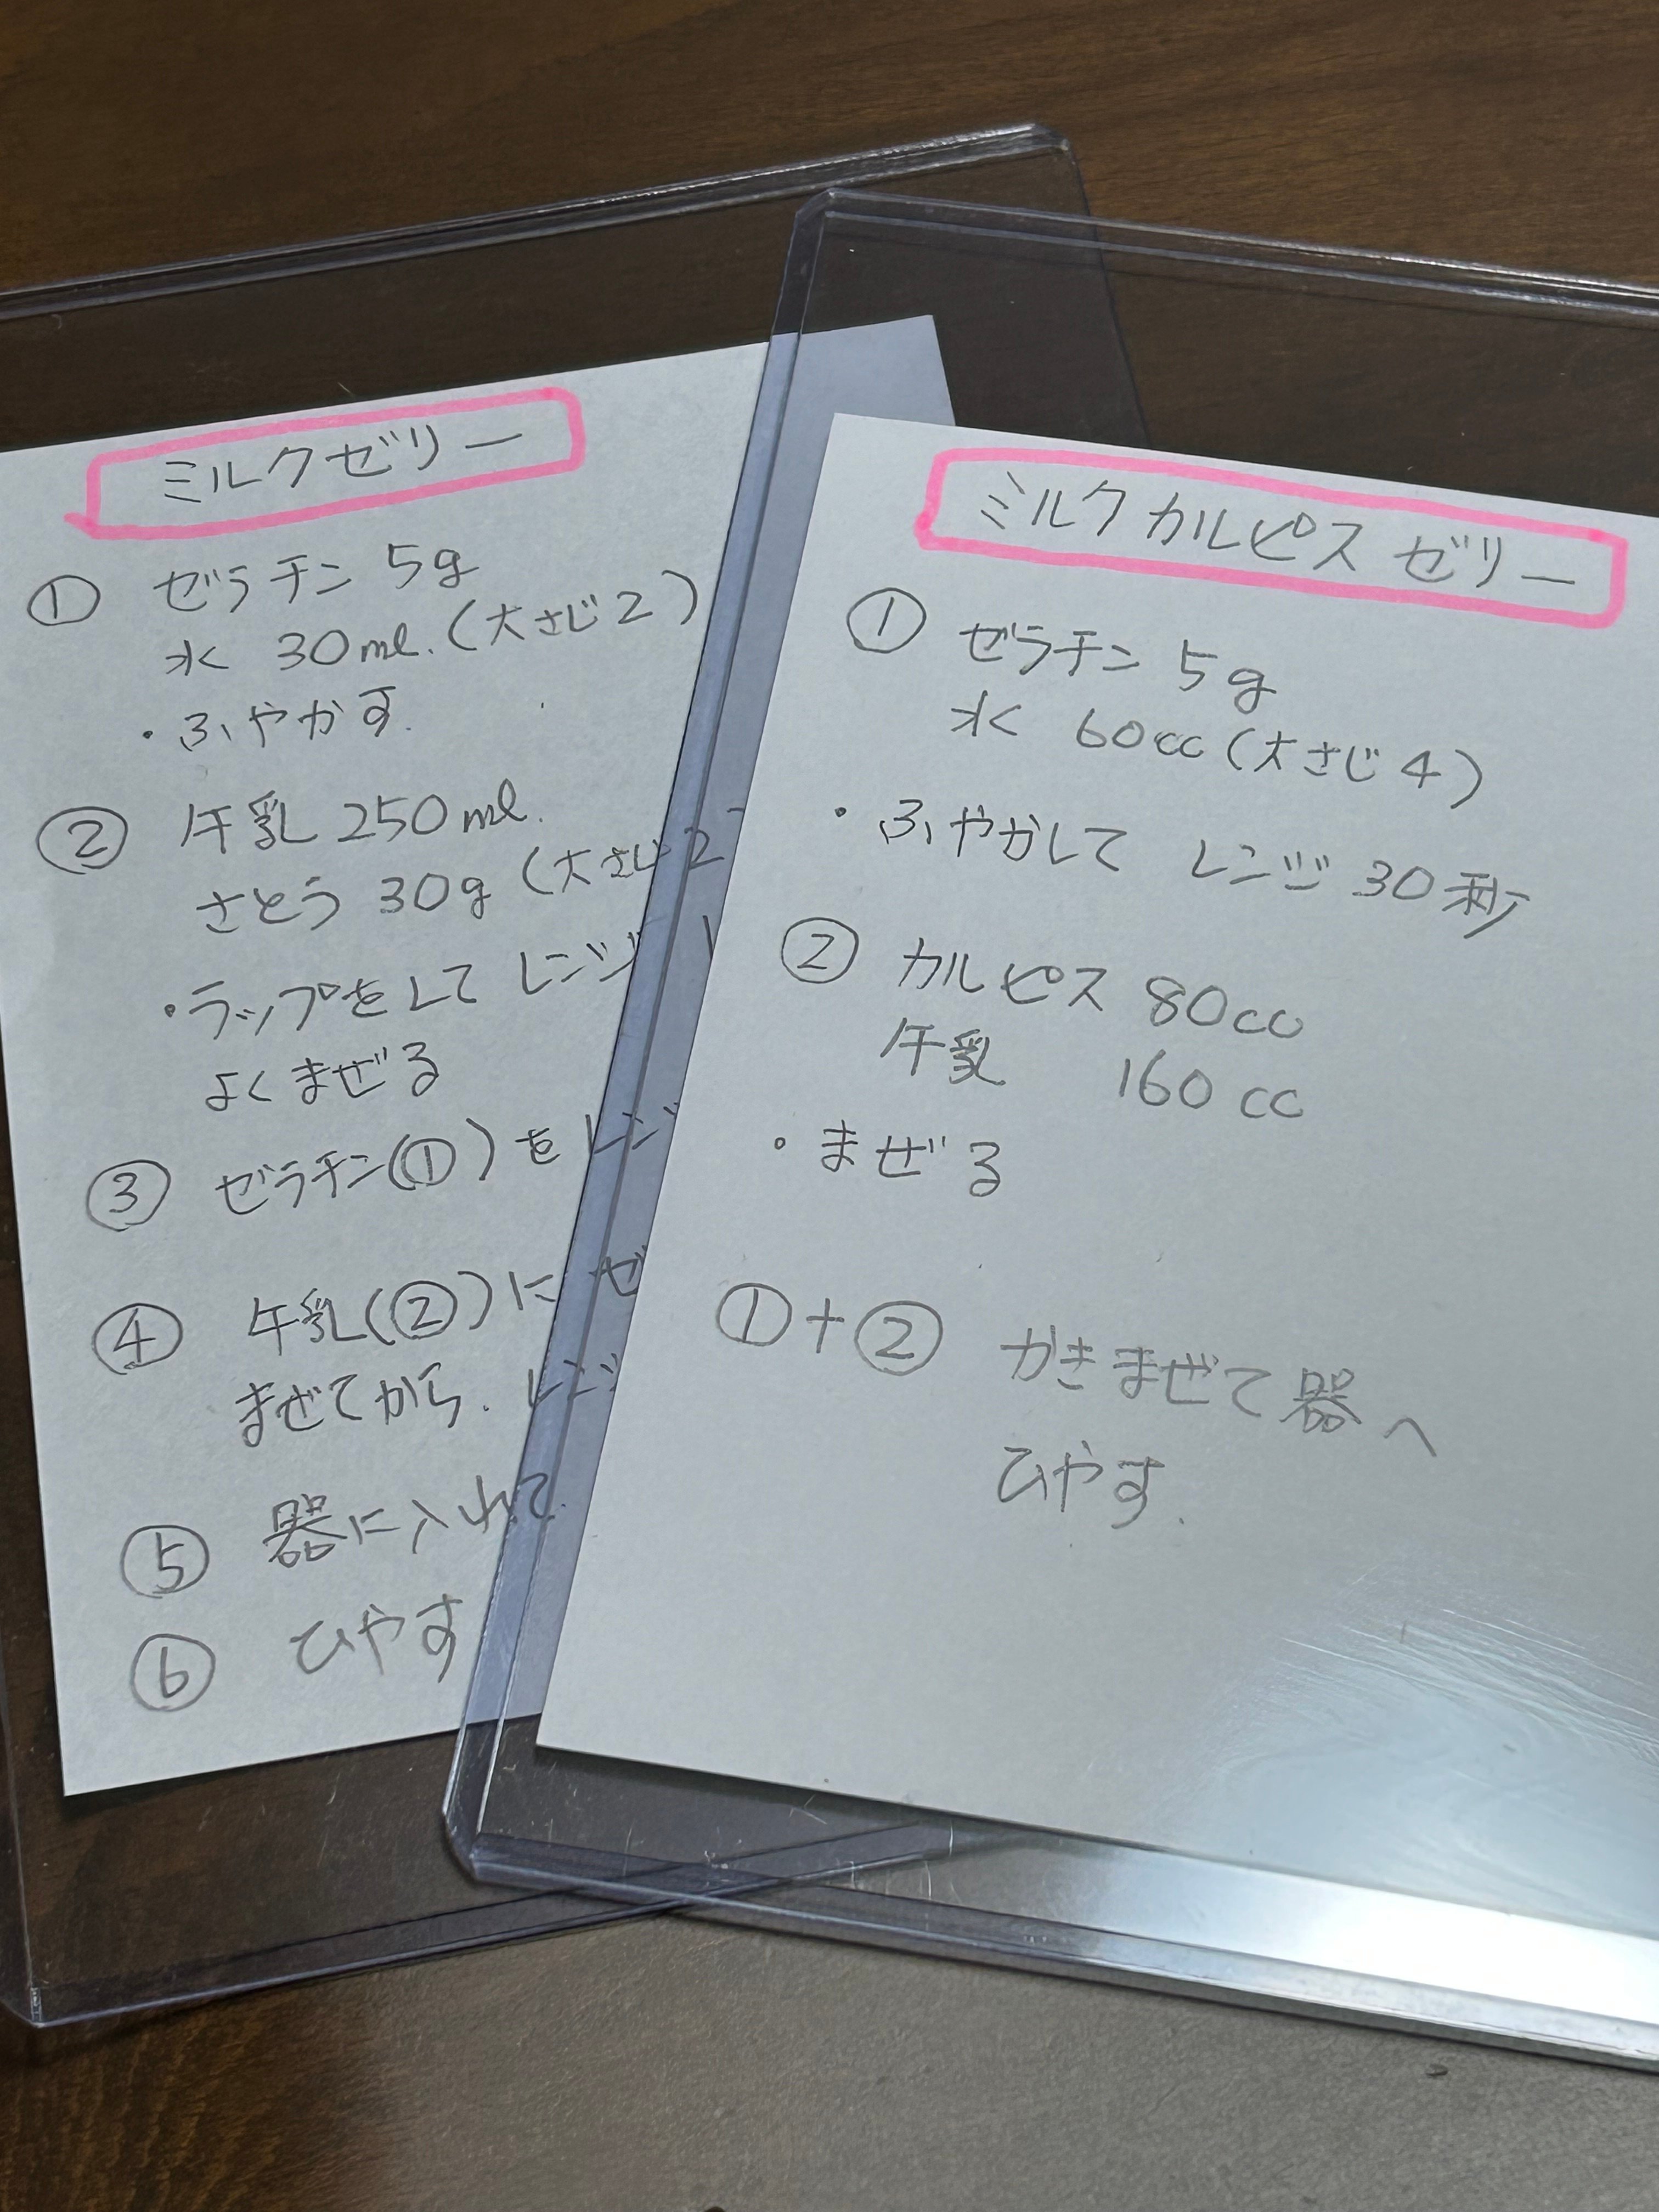 ミルクゼリー
① ゼラチン 5g
水 30ml.(大さじ2)
・ふやかす.
② 牛乳 250ml.
さとう 30g (大さじ2
・ラップをして レンジ
よくまぜる
③ ゼラチン(①)を レンジ
④ 牛乳(②)に ゼ
まぜてから. レンジ
⑤ 器に入れて.
⑥ ひやす
ミルクカルピスゼリー
① ゼラチン 5g
水 60cc(大さじ4)
・ふやかして レンジ 30秒
② カルピス 80cc
牛乳 160cc
・まぜる
①+② かきまぜて器へ
ひやす.